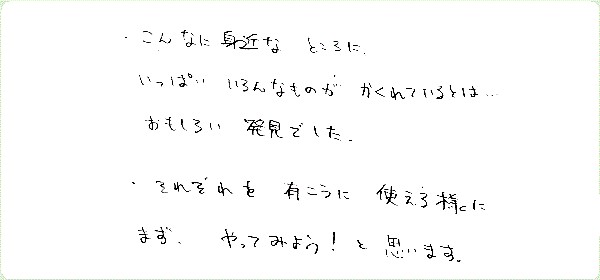 ・こんなに身近な ところに、
いっぱい いろんなものが かくれているとは…
おもしろい 発見でした。
・それぞれを 有こうに 使える様に
まず、やってみよう！と 思います。